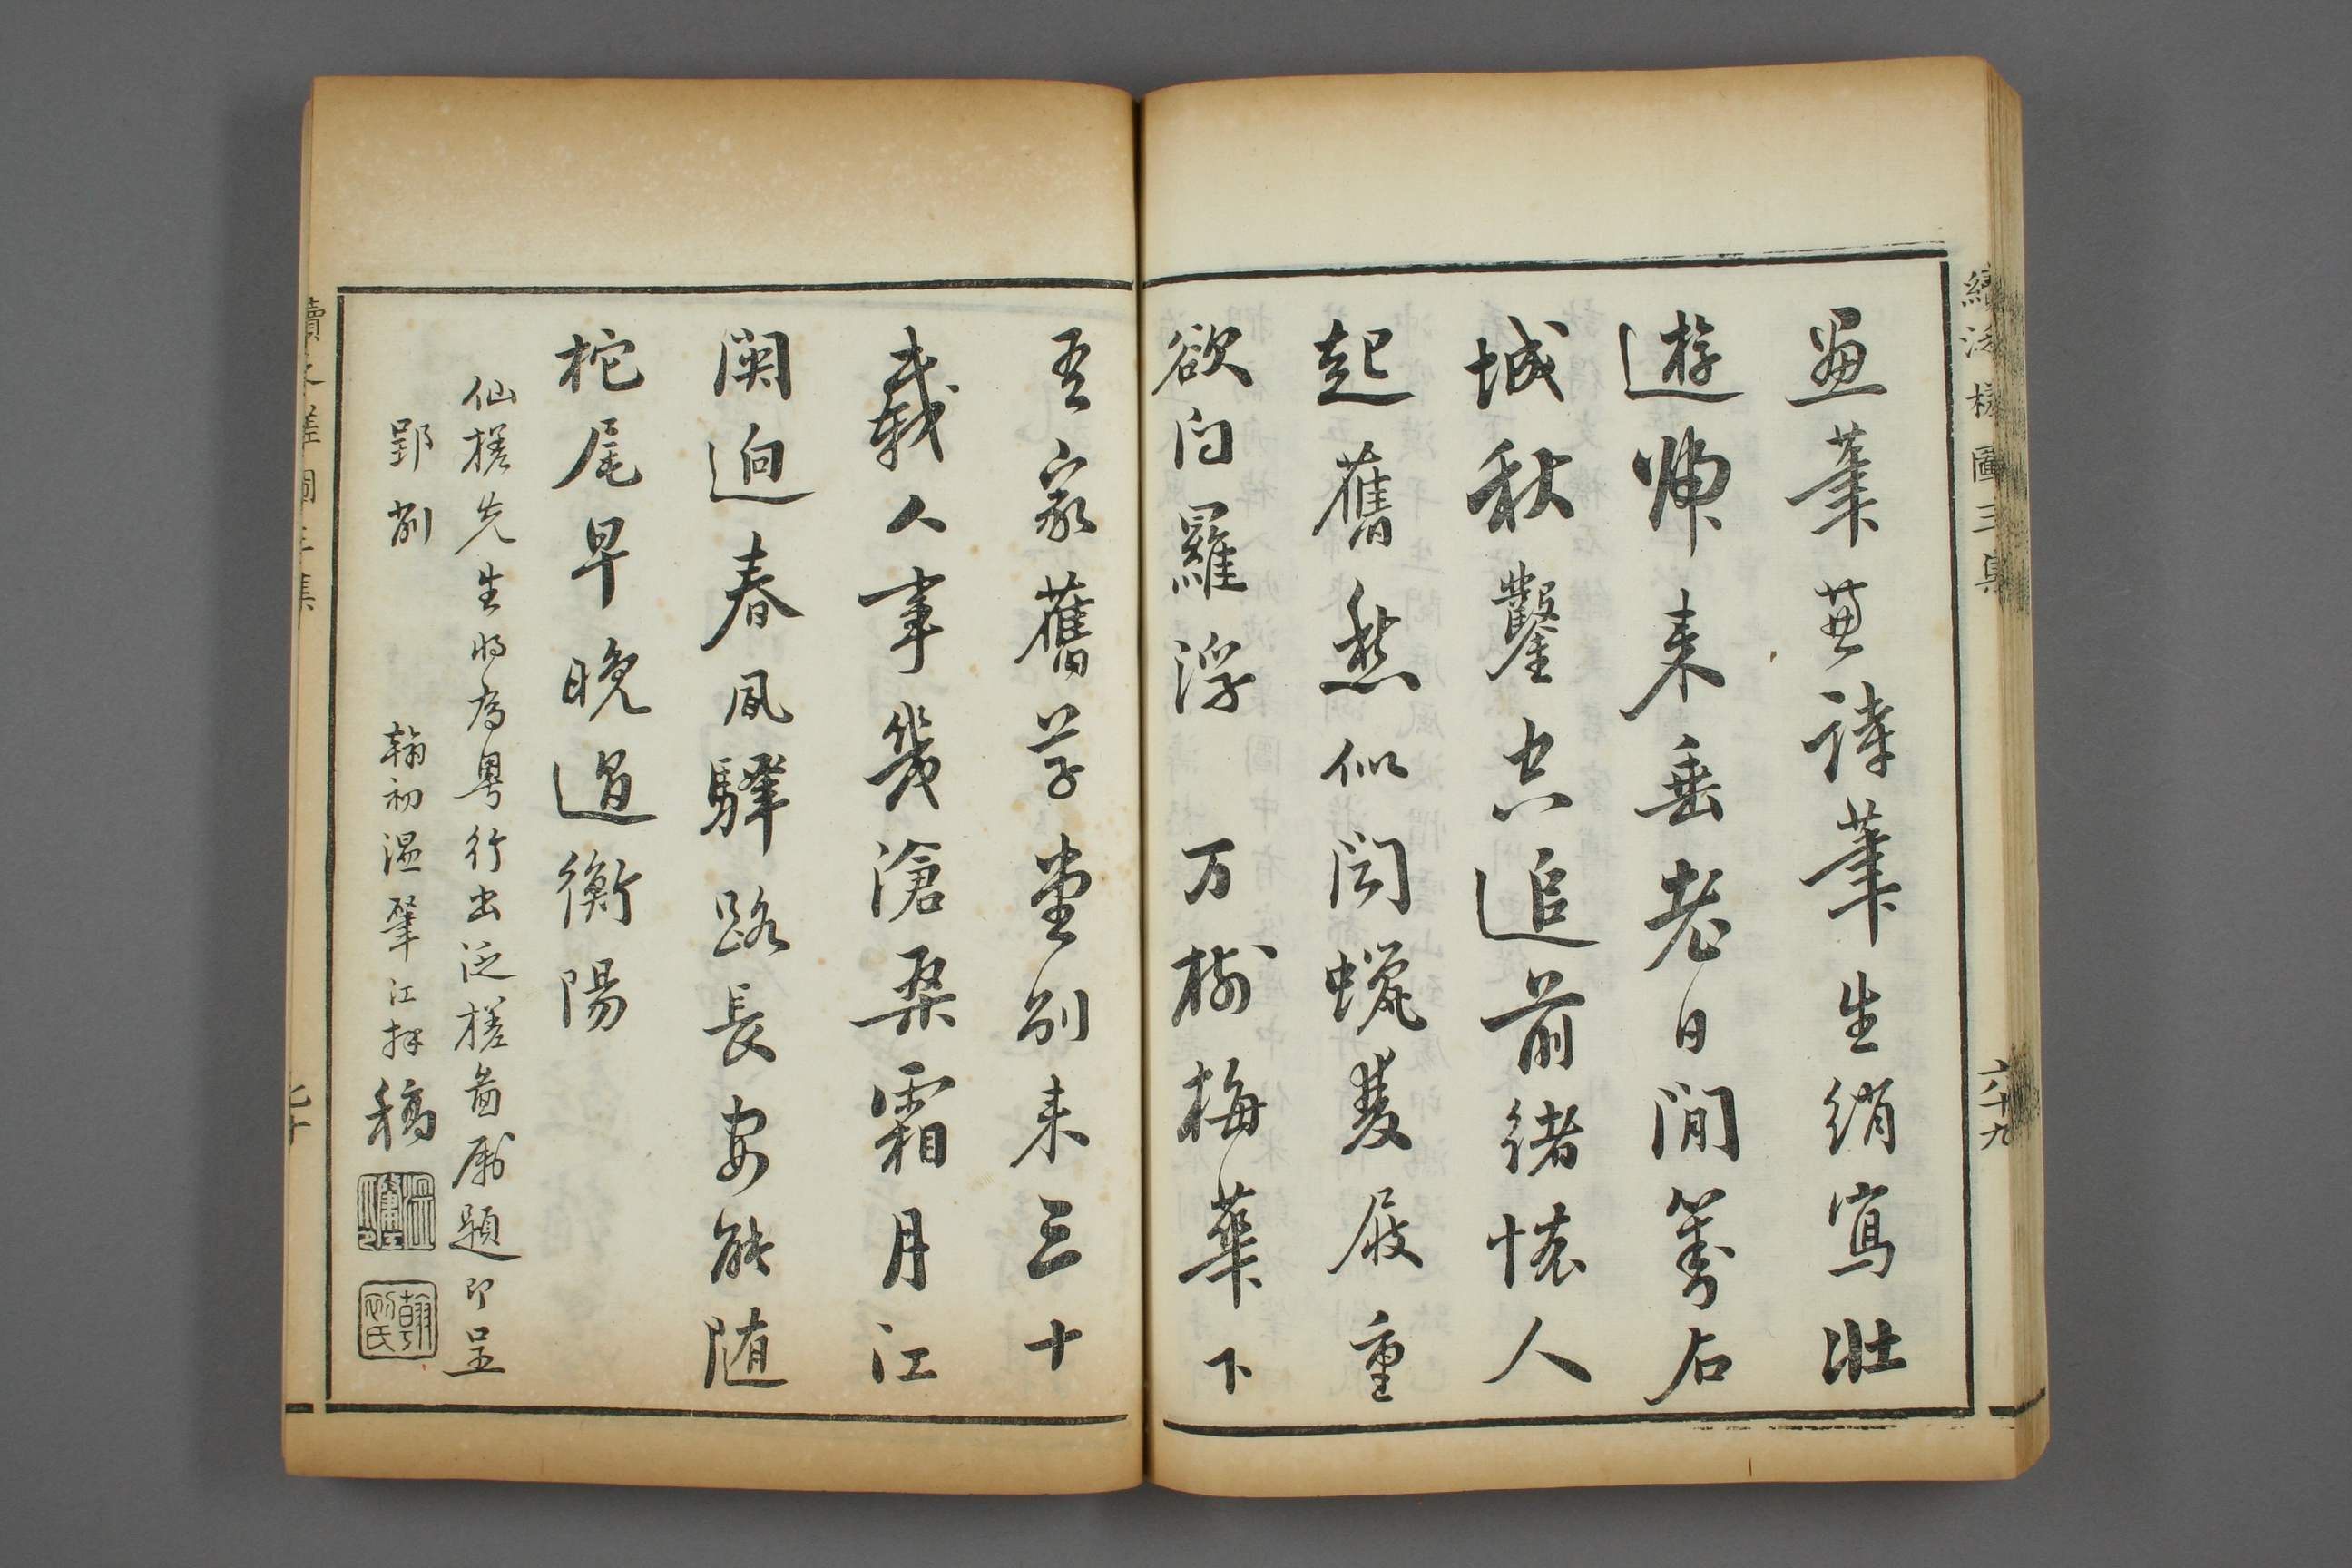 續泛槎圖三集
六十九
畫筆兼詩筆生綃寫壯
遊歸來垂老日閒著石
城秋鑿空追前緒懷人
起舊愁似聞蠟雙屐重
欲向羅浮 万樹梅華下
吾家舊草堂別來三十
載人事幾滄桑霜月江
関迥春風驛路長安能随
柁尾早晚過衡陽
仙槎先生將為粵行出泛槎圖屬題即呈
郢削 翰初溫肇江拜稿
翰初氏
續泛槎圖三集
七十